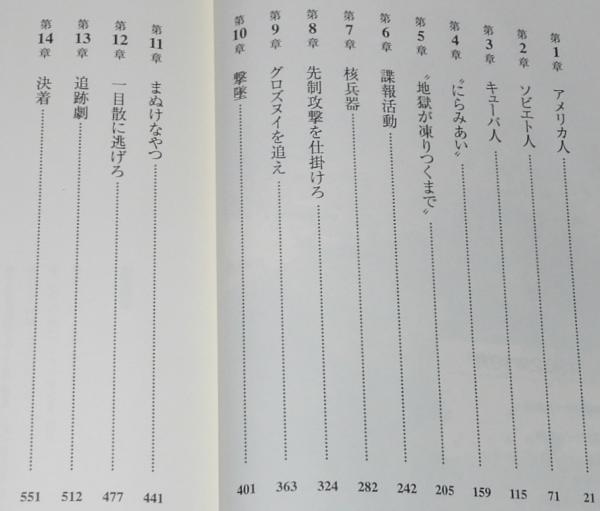 第1章 アメリカ人 21
第2章 ソビエト人 71
第3章 キューバ人 115
第4章 〝にらみあい〟 159
第5章 〝地獄が凍りつくまで〟 205
第6章 諜報活動 242
第7章 核兵器 282
第8章 先制攻撃を仕掛けろ 324
第9章 グロズヌイを追え 363
第10章 撃墜 401
第11章 まぬけなやつ 441
第12章 一目散に逃げろ 477
第13章 追跡劇 512
第14章 決着 551